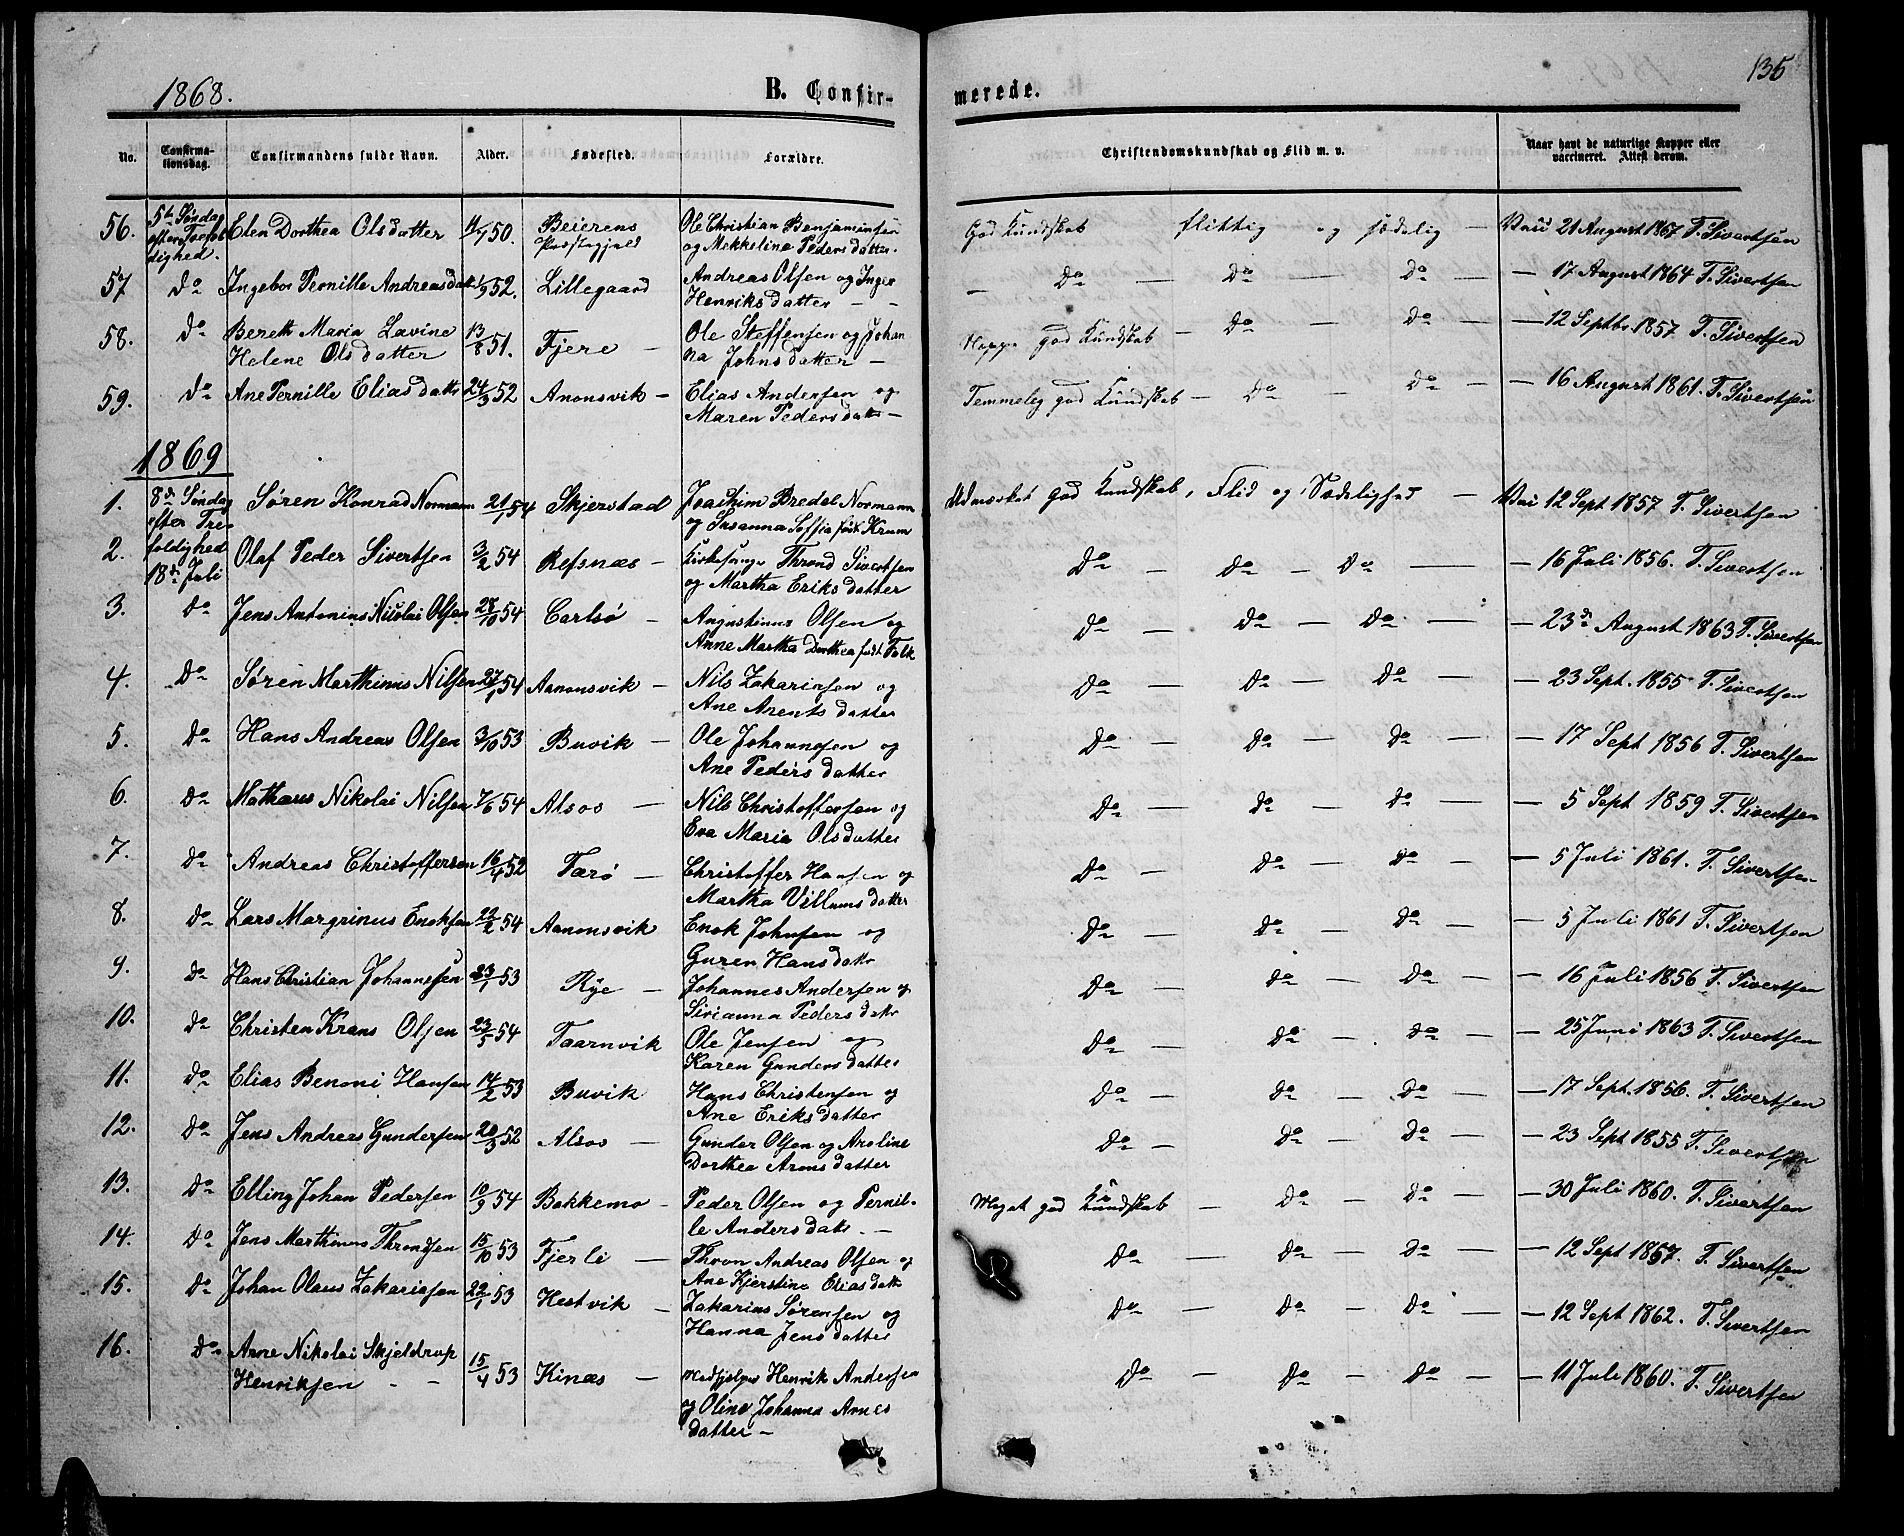 1868.
B. Confir-
merede.
135
No.
Confirma-
tionsdag.
Confirmandens fulde Navn.
Alder.
Fødested.
Forældre.
Christendomskundskab og Flid m. v.
Naar havt de naturlige Kopper eller
vaccineret. Attest derom.
56. 5te Søndag efter Trefoldighed. Elen Dorthea Olsdatter 50. Beierens Præstegjæld Ole Christian Benjaminsen og Mekkeline Pedersdatter. God Kundskab flittig og sædelig — Vaci 21 August 1867 T. Sivertsen
57 Do Ingebor Pernille Andreasdatter 52. Lillegaard Andreas Olsen og Inger Henriksdatter — — — Do — Do — Do — — 17 August 1864 T. Sivertsen
58. Do Bereth Maria Lavine Helene Olsdatter 13/8 51. Fjere — Ole Steffensen og Johanna Johnsdatter — god Kundskab — Do — Do — — 12 Septbr. 1857 T. Sivertsen
59. Do Ane Pernille Eliasdattr 24/3 52 Anonsvik — Elias Andersen og Maren Pedersdattr — Temmeleg god Kundskab — Do — Do — — 16 August 1861. T. Sivertsen
1869
1. 8de Søndag efter Trefoldighed 18de Juli Søren Konrad Normann 21/1 54 Skjerstad Joachim Bredal Normann og Susanna Soffia født Krum Udmærket god Kundskab, Flid og Sædelighed — Vaci 12 Sept 1857 T. Sivertsen
2. Olaf Peder Sivertsen 3/2 54 Refsnæs — Kirkesanger Thrond Sivertsen og Martha Eriksdatter Do — Do — Do — — 16 Juli 1856. T. Sivertsen
3. Do Jens Antonius Nicolai Olsen 28/10 54 Carlsø — Augustinus Olsen og Anne Martha Dorthea født Falk Do — Do — Do — — 23de August 1863 T. Sivertsen
4. Do Søren Marthinus Nilsen 27/1 54 Aanonsvik — Nils Zakariasen og Ane Arentsdatter Do — Do — Do — — 23 Sept. 1855 T. Sivertsen
5. Do Hans Andreas Olsen 3/10 53 Buvik — Ole Johannesen og Ane Pedersdatter Do — Do — Do — — 17 Sept 1856 T. Sivertsen
6. Do Mathæus Nikolai Nilsen 7/6 54 Alsos — Nils Christoffersen og Eva Maria Olsdatter Do — Do — Do — — 5 Sept 1859 T. Sivertsen
7. Do Andreas Christoffersen 16/4 52 Farø — Christoffer Hansen og Martha Villumsdatter Do — Do — Do — — 5 Juli 1861. T. Sivertsen
8. Do Lars Margrinus Enoksen 22/2 54 Aanonsvik Enok Johnsen og Guren Hansdattr Do — Do — Do — — 5 Juli 1861 T. Sivertsen
9. Do Hans Christian Johannesen 23/1 53 Rye — Johannes Andersen og Sirianna Pedersdattr Do — Do — Do — — 16 Juli 1856 T. Sivertsen
10. Do Christen Krans Olsen 23/5 54 Taarnvik Ole Jensen og Karen Gundersdatter Do — Do — Do — — 25 Juni 1863 T. Sivertsen
11. Do Elias Benoni Hansen 14/2 53 Buvik Hans Christensen og Ane Eriksdatter Do — Do — Do — — 17 Sept. 1856. T. Sivertsen
12. Do Jens Andreas Gundersen 20/3 52 Alsos — Gunder Olsen og Anoline Dorthea Aronsdatter Do — Do — Do — — 23 Sept 1855 T. Sivertsen
13. Do Elling Johan Pedersen 10/9 54 Bakkemo — Peder Olsen og Pernille Andersdatr. — Meget god Kundskab — Do — Do — — 30 Juli 1860. T. Sivertsen
14. Do Jens Marthinus Throndsen 15/10 53 Fjerli — Thron Andreas Olsen og Ane Kjerstina Eliasdattr Do — Do — Do — — 12 Sept 1857. T. Sivertsen
15. Do Johan Olaus Zakariasen 22/1 53 Hestvik — Zakarias Sørensen og Hanna Jensdatter Do — Do — Do — — 12 Sept 1862. T. Sivertsen
16. Do Arne Nikolai Skjeldrup Henriksen — — 15/4 53 Kinæs — Medhjelper Henrik Andersen og Oline Johanna Arnesdatter — Do — Do — Do — — 11 Juli 1860. T. Sivertsen